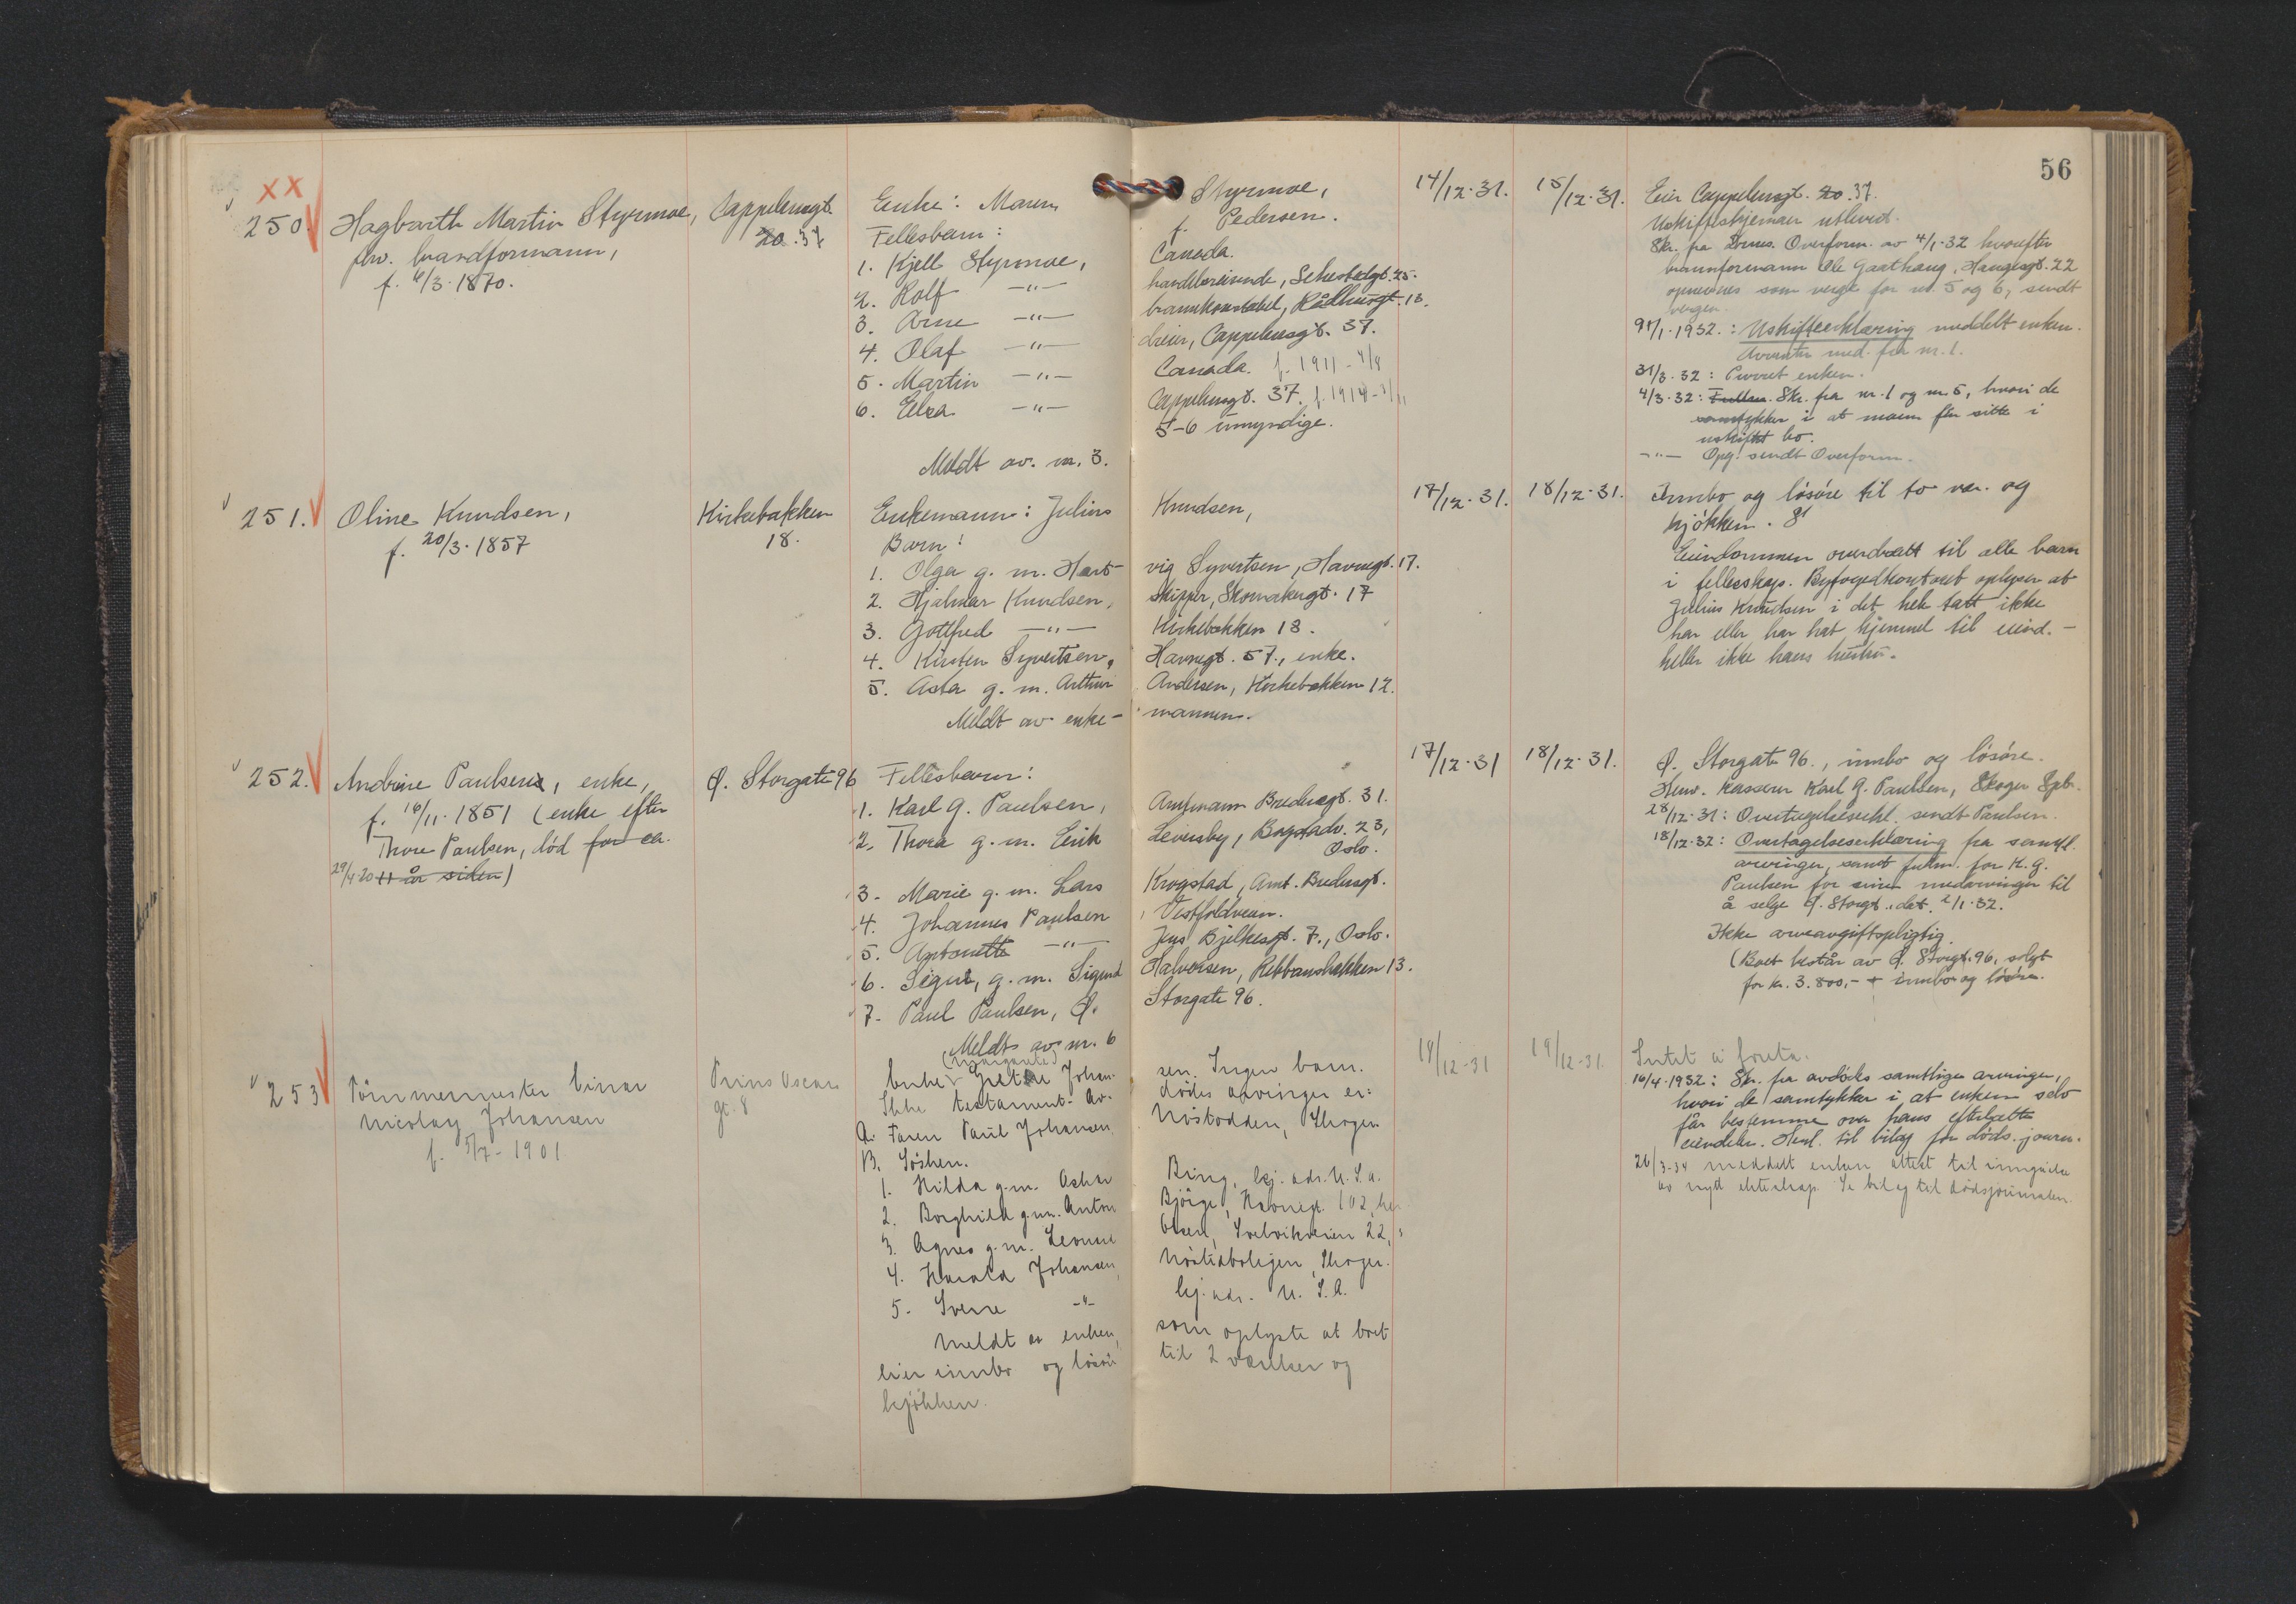 56
XX
250. Hagbarth Martin Styrmoe, Cappelensgt. Enke: Maren Styrmoe, 14/12.31. 15/12.31. Eier Cappelensgt. 20. 37.
fhv. brandformann, 20. 37 Fellesbarn: f. Pedersen. Uskifteskjemaer utlevd.
f. 6/3.1870. 1. Kjell Styrmoe, Canada. Skr. fra Drms. Overform. av 4/1-32 hvorefter
2. Rolf -"- handelsreisende, Schestedgt. 25. brannformann Ole Gaathaug, Haugesgt. 22
3. Arne -"- brannkonstabel, Rådhusgt. 13. opnevnes som verge for nr. 5 og 6, sendt
vergen
4. Olaf -"- dreier, Cappelensgt. 37. 1932.: Uskifteerklæring meddelt enken.
5. Martin -"- Canada. f. 1911 - 4/9 med. fra nr. 1.
6. Elsa -"- Cappelensgt. 37. f. 1914 31/3.32: Purret enken.
5-6 umyndige. 4/3.32: Skr. fra nr. 1 og nr. 5, hvori de
samtykker i at moren får sitte i
uskiftet bo.
Meldt av nr. 3. -"- Opg. sendt Overform.
251. Oline Knudsen, Kirkebakken Enkemann: Julius Knudsen, 17/12.31. 18/12.31. Innbo og løsøre til to vær. og
f. 20/3.1857 18. Barn: kjøkken.
1. Olga g. m. Hart- vig Syvertsen, Havnegt. 17. Eiendommen overdratt til alle barn
2. Hjalmar Knudsen, skipper, Skomakergt. 17 i fellesskap. Byfogedkontoret oplyser at
3. Gottfred -"- Kirkebakken 18. Julius Knudsen i det hele tatt ikke
4. Kirsten Syvertsen, Havnegt. 57., enke. har eller har hat hjemmel til eiend. -
5. Asta g. m. Arthur Andersen, Kirkebakken 12. heller ikke hans hustru.
Meldt av enke- mannen.
252. Andrine Paulsen, enke, Ø. Storgate 96 Fellesbarn: 17/12.31 18/12.31. Ø. Storgate 96., innbo og løsøre.
f. 16/11.1851 (enke efter 1. Karl G. Paulsen, Amtmann Bredesgt. 31. Henv. kasserer Karl G. Paulsen, Skoger Spb.
Thore Paulsen, død for ca. 2. Thora g. m. Erik Leversby, Bogstadv. 23, 28/12.31: Overtagelseserkl. sendt Paulsen.
29/4.20 11 år siden) Oslo. 18/12.32: Overtagelseserklæring fra samtl.
3. Marie g. m. Lars Krogstad, Amt. Bredesgt. arvinger, samt fullm. for K. G.
4. Johannes Paulsen Vestfoldveien. Paulsen for sine medarvinger til
5. Antonette -"- Jens Bjelkesgt. 7., Oslo. å selge Ø. Storgt. dat. 2/1.32.
6. Signe, g. m. Sigurd Halvorsen, Rebbansbakken 13. Ikke arveavgiftspligtig.
7. Paul Paulsen, Ø. Storgate 96. (Boet består av Ø. Storgt. 96, solgt
Meldt av nr. 6 for kr. 3.800,- + innbo og løsøre.
(Margarete)
253 Tømmermester Einar Prins Oscars Enke Grethe Johan- sen. Ingen barn. 18/12-31 19/12-31. Intet å foreta.
Nicolay Johansen gt. 8 Ikke testament. Av- dødes arvinger er: 16/4.1932: Skr. fra avdødes samtlige arvinger,
f. 5/7-1901 A. Faren Paul Johansen, Nøstodden, Skoger hvori de samtykker i, at enken selv
B. Søsken. får bestemme over hans efterlatte
1. Hilda g.m. Oskar Ring, bj. adr. U.S.A. eiendeler. Henl. til bilag for døds.journ.
2. Borghild g.m. Anton Bjørge, Havnegt. 102, her 26/3-34 meddelt enken attest til inngåelse
3. Agnes g. m. Leonard Olsen, Svelvikveien 22, av nytt ekteskap. Se bilag til dødsjournalen.
4. Harald Johansen, Nøstebolgen, Skoger.
5. Sverre -"- bj. adr. U.S.A.
Meldt av enken, som oplyste at boet
eier innbo og løsøre til 2 værelser og
kjøkken.